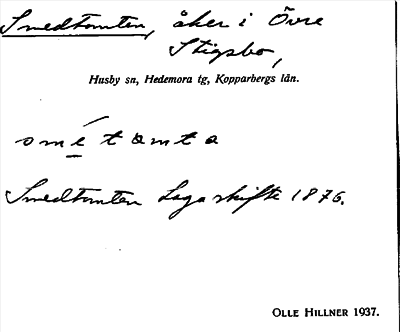 Smedtomten, åker i Övre
Stigsbo,
Husby sn, Hedemora tg, Kopparbergs län.
smé̠tamta
Smedtomten Laga skifte 1876.
OLLE HILLNER 1937.